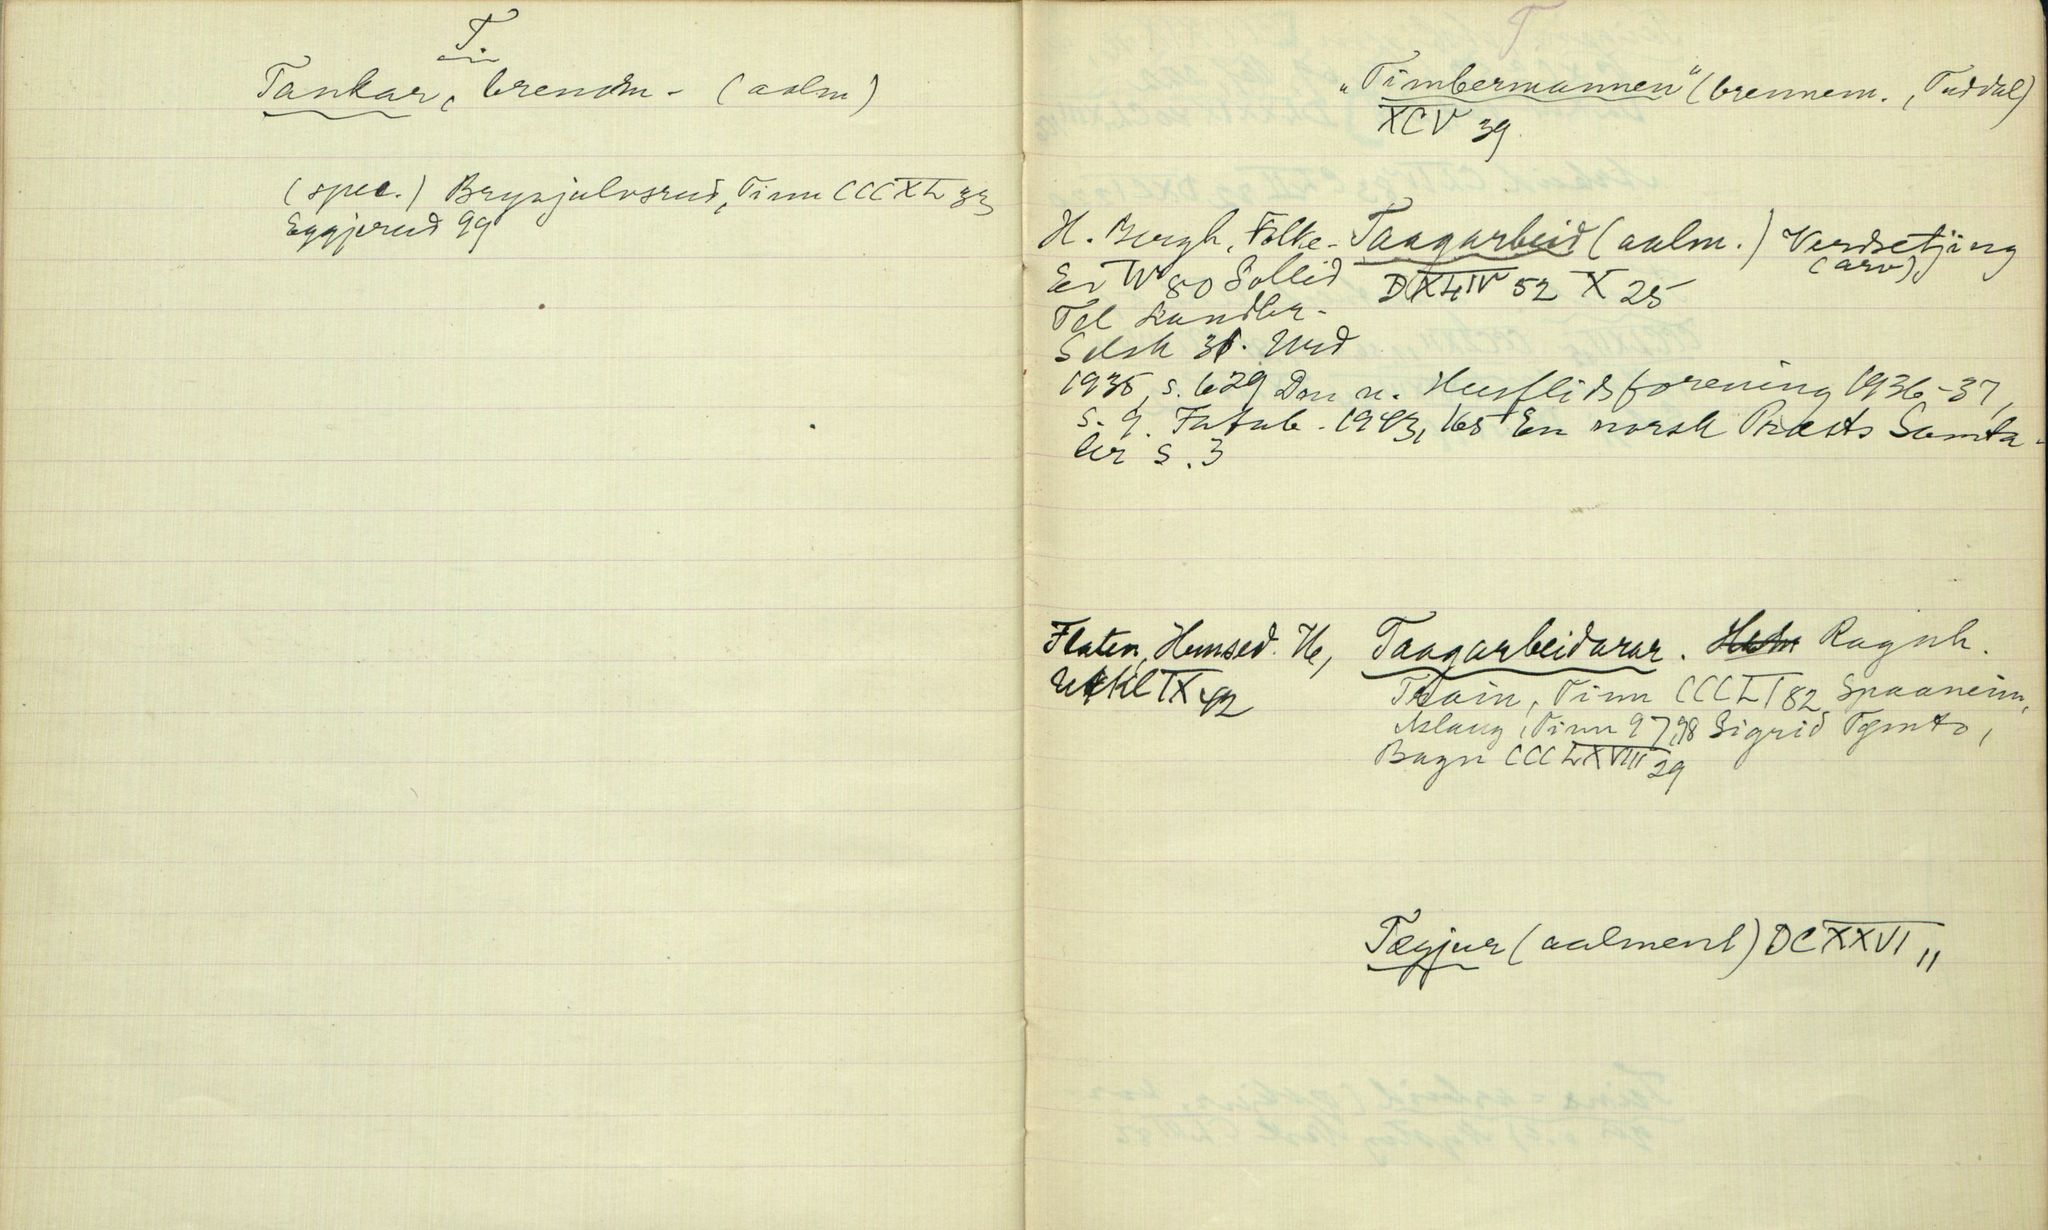 T
Tankar, brendm- (aalm)
(spec.) Brynjulvsrud, Tinn CCCXL 33
Eggjerud 99
T
"Timbermannen" (brennem., Tuddal)
XCV 39
H. Bergh, Folke- Taagarbeid (aalm.) Verdsetjing
(arv)
Ev IV 80 Sollid DXLIV 52 X 25
Tel Landbr-
Selsk 31. Urd
1935, s. 629 Den n. Husflidsforening 1936-37,
s. 9. Fatab. 1943, 165 En norsk Præsts Samta-
ler s. 3
Flaten, Hemsed. He, Taagarbeidarar. Ragnh.
IX 42 Traain, Tinn CCCLI 82 Spaaneim,
Aslaug, Tinn 97, 98 Sigrid
Bagn CCCLXVIII 29
Tægjur (aalment) DCXXVI 11